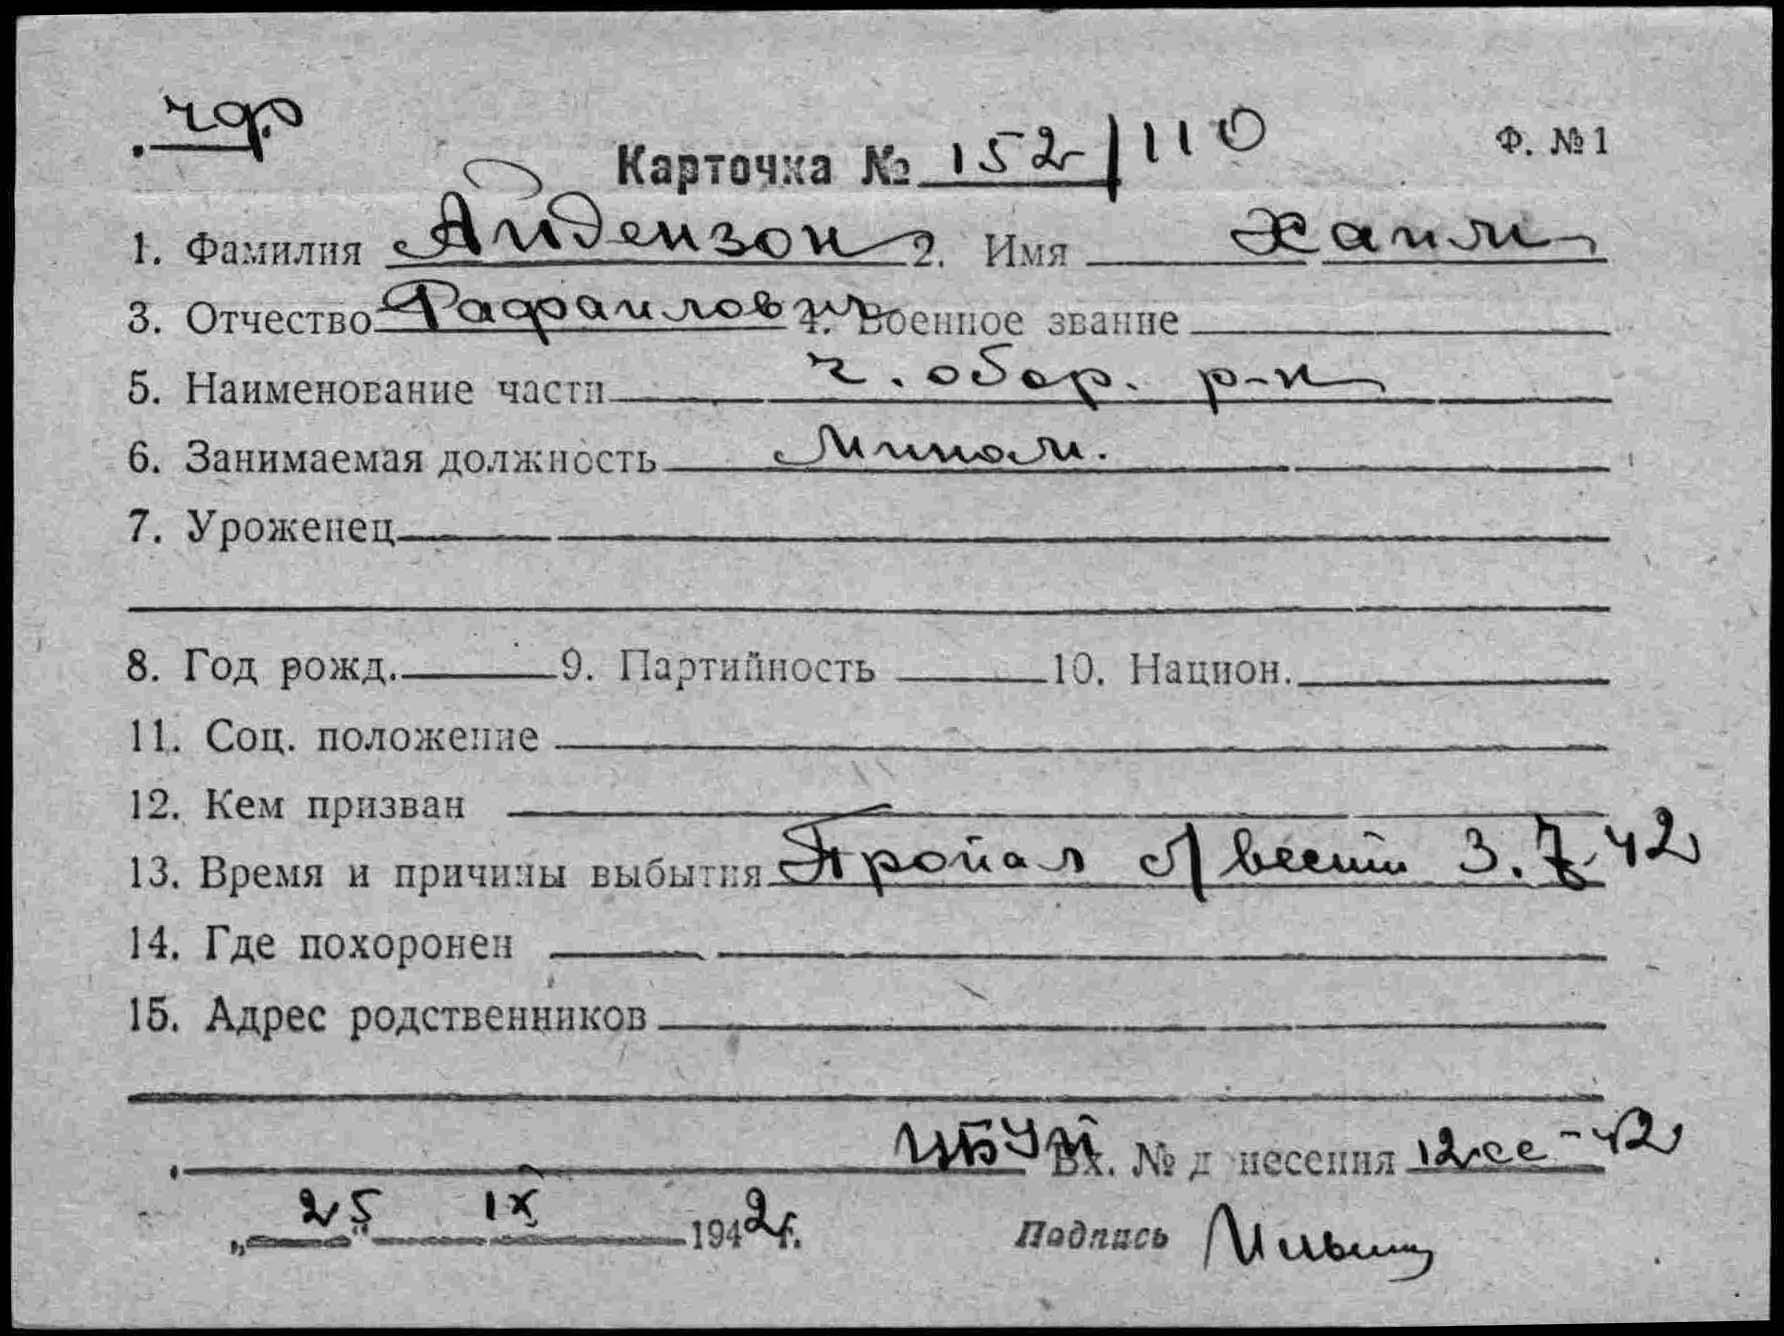 чф
Карточка № 152/110 Ф. №1
1. Фамилия Айдензон 2. Имя Хаим
3. Отчество Рафаилович 4. Военное звание
5. Наименование части ч. обор. р-н
6. Занимаемая должность Мином.
7. Уроженец
8. Год рожд. 9. Партийность 10. Национ.
11. Соц. положение
12. Кем призван
13. Время и причины выбытия Пропал б/вести 3.7.42
14. Где похоронен
15. Адрес родственников
Вх. № д несения 12сс-42
„25“ IX 1942г. Подпись